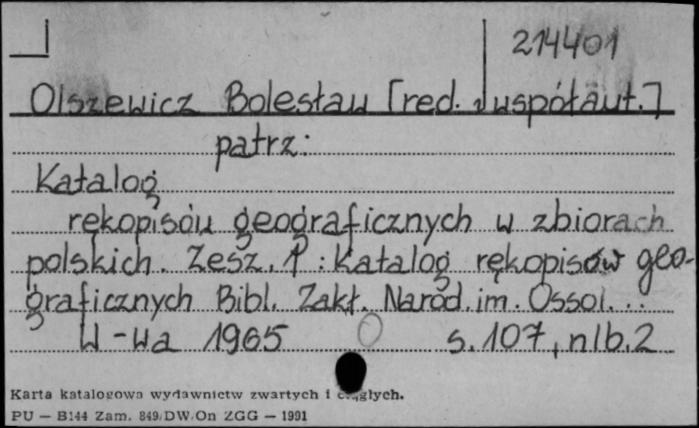 214401
Olszewicz Bolesław [red. i współaut.]
patrz:
Katalog
rękopisów geograficznych w zbiorach
polskich. Zesz. 1 : Katalog rękopisów geo-
graficznych Bibl. Zakł. Narod. im. Ossol...
W-wa 1965 s. 107, nlb. 2
Karta katalogowa wydawnictw zwartych i ciągłych.
PU — B144 Zam. 849/DW/On ZGG — 1991